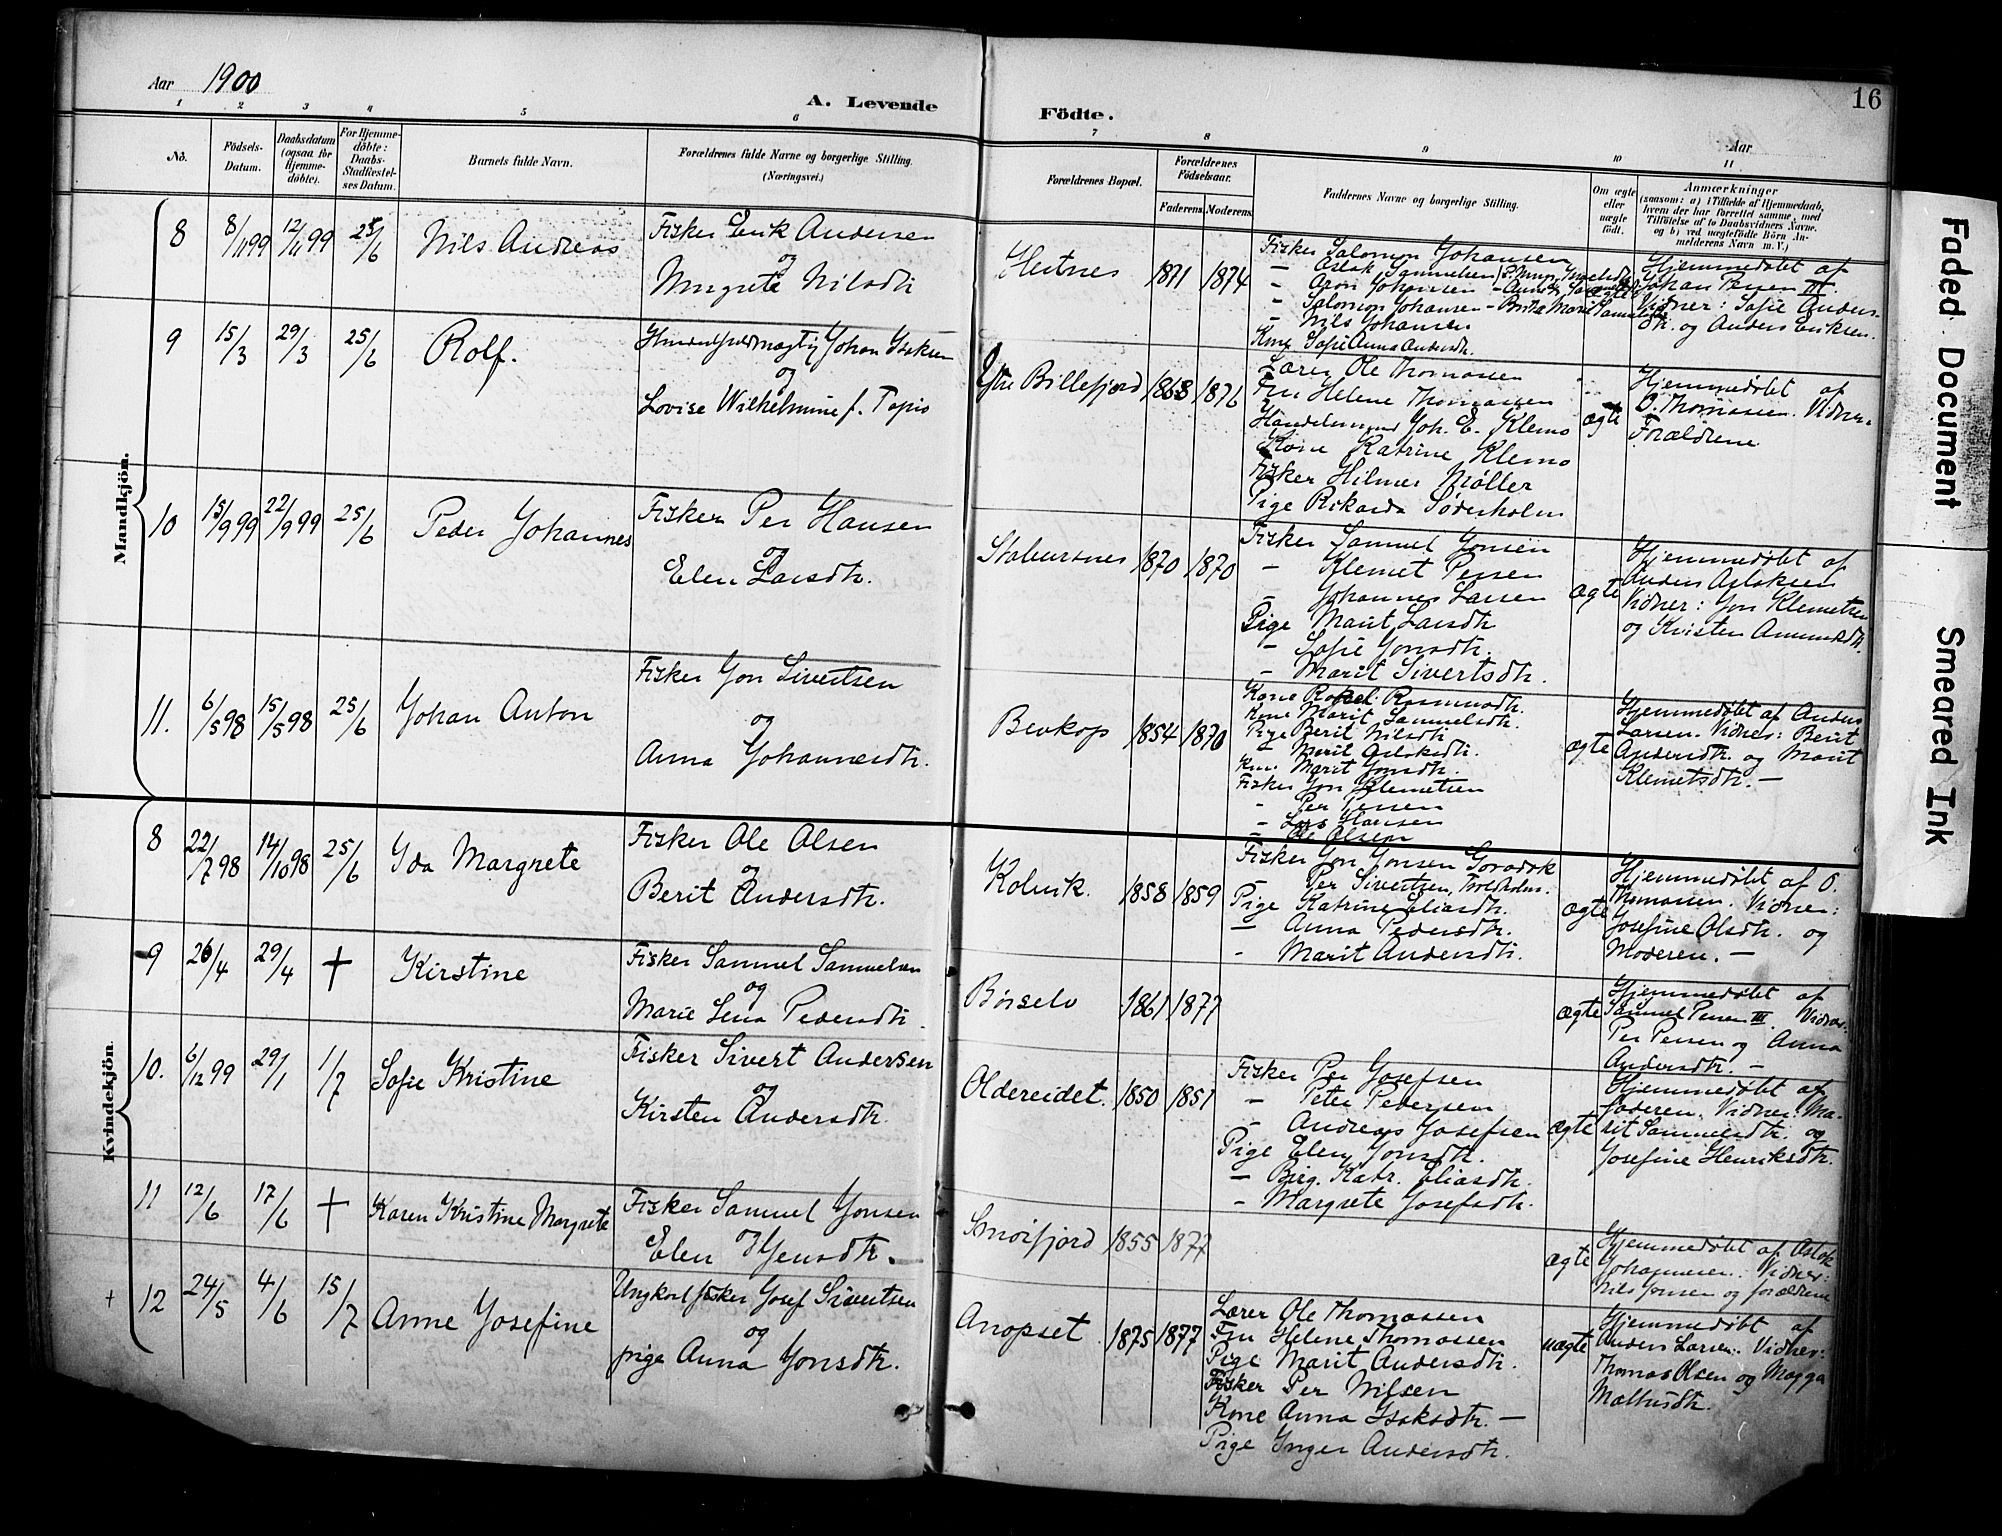 Aar 1900
A. Levende Födte.
16
Aar
1 2 3 4 5 6 7 8 9 10 11
No.
Födsels-Datum.
Daabsdatum (ogsaa for Hjemme-döbte).
For Hjemme-döbte: Daabs-Stadfæstel-ses Datum.
Barnets fulde Navn.
Forældrenes fulde Navne og borgerlige Stilling. (Næringsvei.)
Forældrenes Bopæl.
Forældrenes Födselsaar.
Faderens. Moderens.
Faddernes Navne og borgerlige Stilling.
Om ægte eller uægte födt.
Anmærkninger
(saasom: a) i Tilfælde af Hjemmedaab, hvem der har forrettet samme, med Tilföielse af to Daabsvidners Navne, og b) ved uægtefödte Börn An-melderens Navn m. V.)
Mandkjön.
8 8/11 99 12/11 99 25/6 Nils Andreas
Fisker Erik Andersen
og
Margrete Nilsdtr
1871 1874
Fisker Salomon Johansen
- Aslak Samuelsen
- Aron Johansen
- Salomon Johansen - Brita Marie
- Nils Johansen
Kone Sofie Anna Andersdtr.
Hjemmedøbt af
Johan Persen III.
Vidner: Sofie Anders-
dtr. og Anders Eriksen.
9 15/3 29/3 25/6 Rolf.
Johan Isaksen
og
Lovise Wilhelmine f. Tapio
Ytre Billefjord 1868 1876
Lærer Ole Thomassen
Fru Helene Thomassen
Handelsmand Joh. E. Klemo
Kone Katrine Klemo
Fisker Hilmer Møller
Pige Rikarda Søderholm
ægte
Hjemmedøbt af
O. Thomassen. Vidner:
Forældrene
10 15/9 99 22/9 99 25/6 Peder Johannes
Fisker Per Hansen
og
Elen Larsdtr.
Stabursnes 1870 1870
Fisker Samuel Jonsen
- Klemet Persen
- Johannes Larsen
Pige Marit Larsdtr
- Sofie Jonsdtr.
- Marit Sivertsdtr.
ægte
Hjemmedøbt af
Anders Aslaksen
Vidner: Jon Klemetsen
og Kristen Amundsdtr.
11. 6/5 98 15/5 98 25/6 Johan Anton
Fisker Jon Sivertsen
og
Anna Johannesdtr.
Bevkop 1854 1870
Kone Rakel Rasmusdtr.
Kone Marit Samuelsdtr.
Pige Berit Nilsdtr
- Marit Aslaksdtr.
Kone Marit Jonsdtr.
Fisker Jon Klemetsen
- Per Persen
- Lars Hansen
- Ole Olsen
ægte
Hjemmedøbt af Anders
Larsen. Vidner: Berit
Andersdtr. og Marit
Klemetsdtr. -
Kvindekjön.
8 22/7 98 14/10 98 25/6 Ida Margrete
Fisker Ole Olsen
og
Berit Andersdtr.
Kolvik. 1858 1859
Fisker Jon Jonsen
- Per Sivertsen,
Pige Katrine Eliasdtr.
- Anna Pedersdtr.
- Marit Andersdtr.
ægte
Hjemmedøbt af O.
Thomassen. Vidner:
Josefine Olsdtr. og
Moderen. -
9 26/4 29/4 + Kirstine
Fisker Samuel Samuelsen
og
Marie Lena Pedersdtr
Børselv 1861 1877
ægte
Hjemmedøbt af
Samuel Persen III. Vidner:
Per Persen og Anna
Andersdtr. -
10. 6/12 99 29/1 1/7 Sofie Kristine
Fisker Sivert Andersen
og
Kirsten Andersdtr.
Oldereidet. 1850 1851
Fisker Per Josefsen
- Peter Pedersen
- Andreas Josefsen
Pige Elen Jonsdtr.
- Birg. Katr. Eliasdtr.
- Margrete Josefsdtr.
ægte
Hjemmedøbt af
faderen. Vidner: Ma-
rit Samuelsdtr. og
Josefine Henriksdtr.
11 12/6 17/6 + Karen Kristine Margrete
Fisker Samuel Jonsen
og
Elen Jensdtr.
Smörfjord 1855 1877
ægte
Hjemmedøbt af Aslak
Johannesen. Vidner:
Nils Jonsen og forældrene
+ 12 24/5 4/6 15/7 Anne Josefine
Ungkarl fisker Josef Sivertsen
og
pige Anna Jonsdtr.
Anopset 1875 1877
Lærer Ole Thomassen
Fru Helene Thomassen
Pige Marit Andersdtr.
Fisker Per Nilsen
Kone Anna Isaksdtr. -
Pige Inger Andersdtr.
uægte
Hjemmedøbt af
Anders Larsen. Vidner:
Thomas Olsen og Magga
Mathisdtr.
Faded Document
Smeared Ink